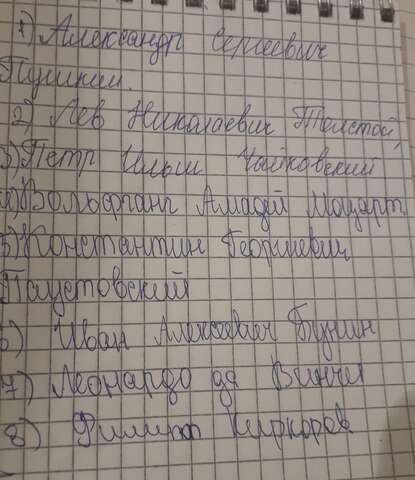 1) Александр Сергеевич
Пушкин.
2) Лев Николаевич Толстой,
3) Петр Ильич Чайковский
4) Вольфганг Амадей Моцарт
5) Константин Георгиевич
Паустовский
6) Иван Алексеевич Бунин
7) Леонардо да Винчи
8) Филипп Киркоров